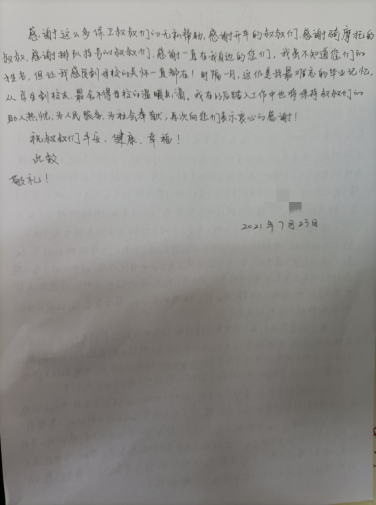 感谢这么多保卫叔叔们的无私帮助,感谢开车的叔叔们,感谢骑摩托的
叔叔,感谢排队指看的叔叔们,感谢一直在我身边的您们,我虽不知道您们的
姓名,但让我感受到母校的关怀一直都在!时隔一月,这仍是我最难忘的毕业记忆,
从学生到校友,最舍不得母校的温暖点滴。我在以后踏入工作中也将保持叔叔们的
助人热忱,为人民服务,为社会奉献,再次向您们表示衷心的感谢!
祝叔叔们平安、健康、幸福!
此致
敬礼!
2021年7月23日